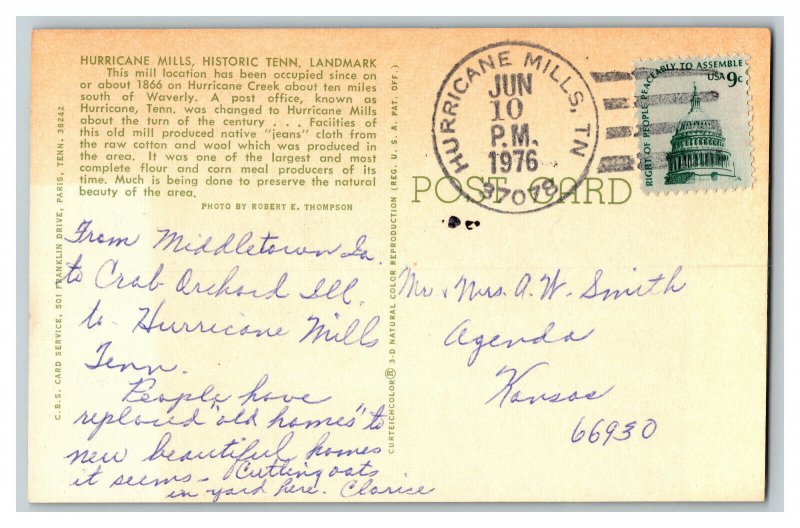 HURRICANE MILLS, HISTORIC TENN. LANDMARK
This mill location has been occupied since on
or about 1866 on Hurricane Creek about ten miles
south of Waverly. A post office, known as
Hurricane, Tenn. was changed to Hurricane Mills
about the turn of the century . . . Faciities of
this old mill produced native "jeans" cloth from
the raw cotton and wool which was produced in
the area. It was one of the largest and most
complete flour and corn meal producers of its
time. Much is being done to preserve the natural
beauty of the area.
PHOTO BY ROBERT E. THOMPSON
C.B.S. CARD SERVICE, 501 FRANKLIN DRIVE, PARIS, TENN. 38242
From Middletown Ia.
to Crab Orchard Ill.
to Hurricane Mills
Tenn.
People have
replaced "old homes" to
new beautiful homes
it seems - Cutting oats
in yard here. Clarice
CURTEICHCOLOR® 3-D NATURAL COLOR REPRODUCTION (REG. U.S.A. PAT. OFF.)
HURRICANE MILLS, TN
JUN
10
P.M.
1976
37078
RIGHT OF PEOPLE PEACEABLY TO ASSEMBLE
USA 9c
POST CARD
Mr. Mrs. A. W. Smith
Agenda
Kansas
66930